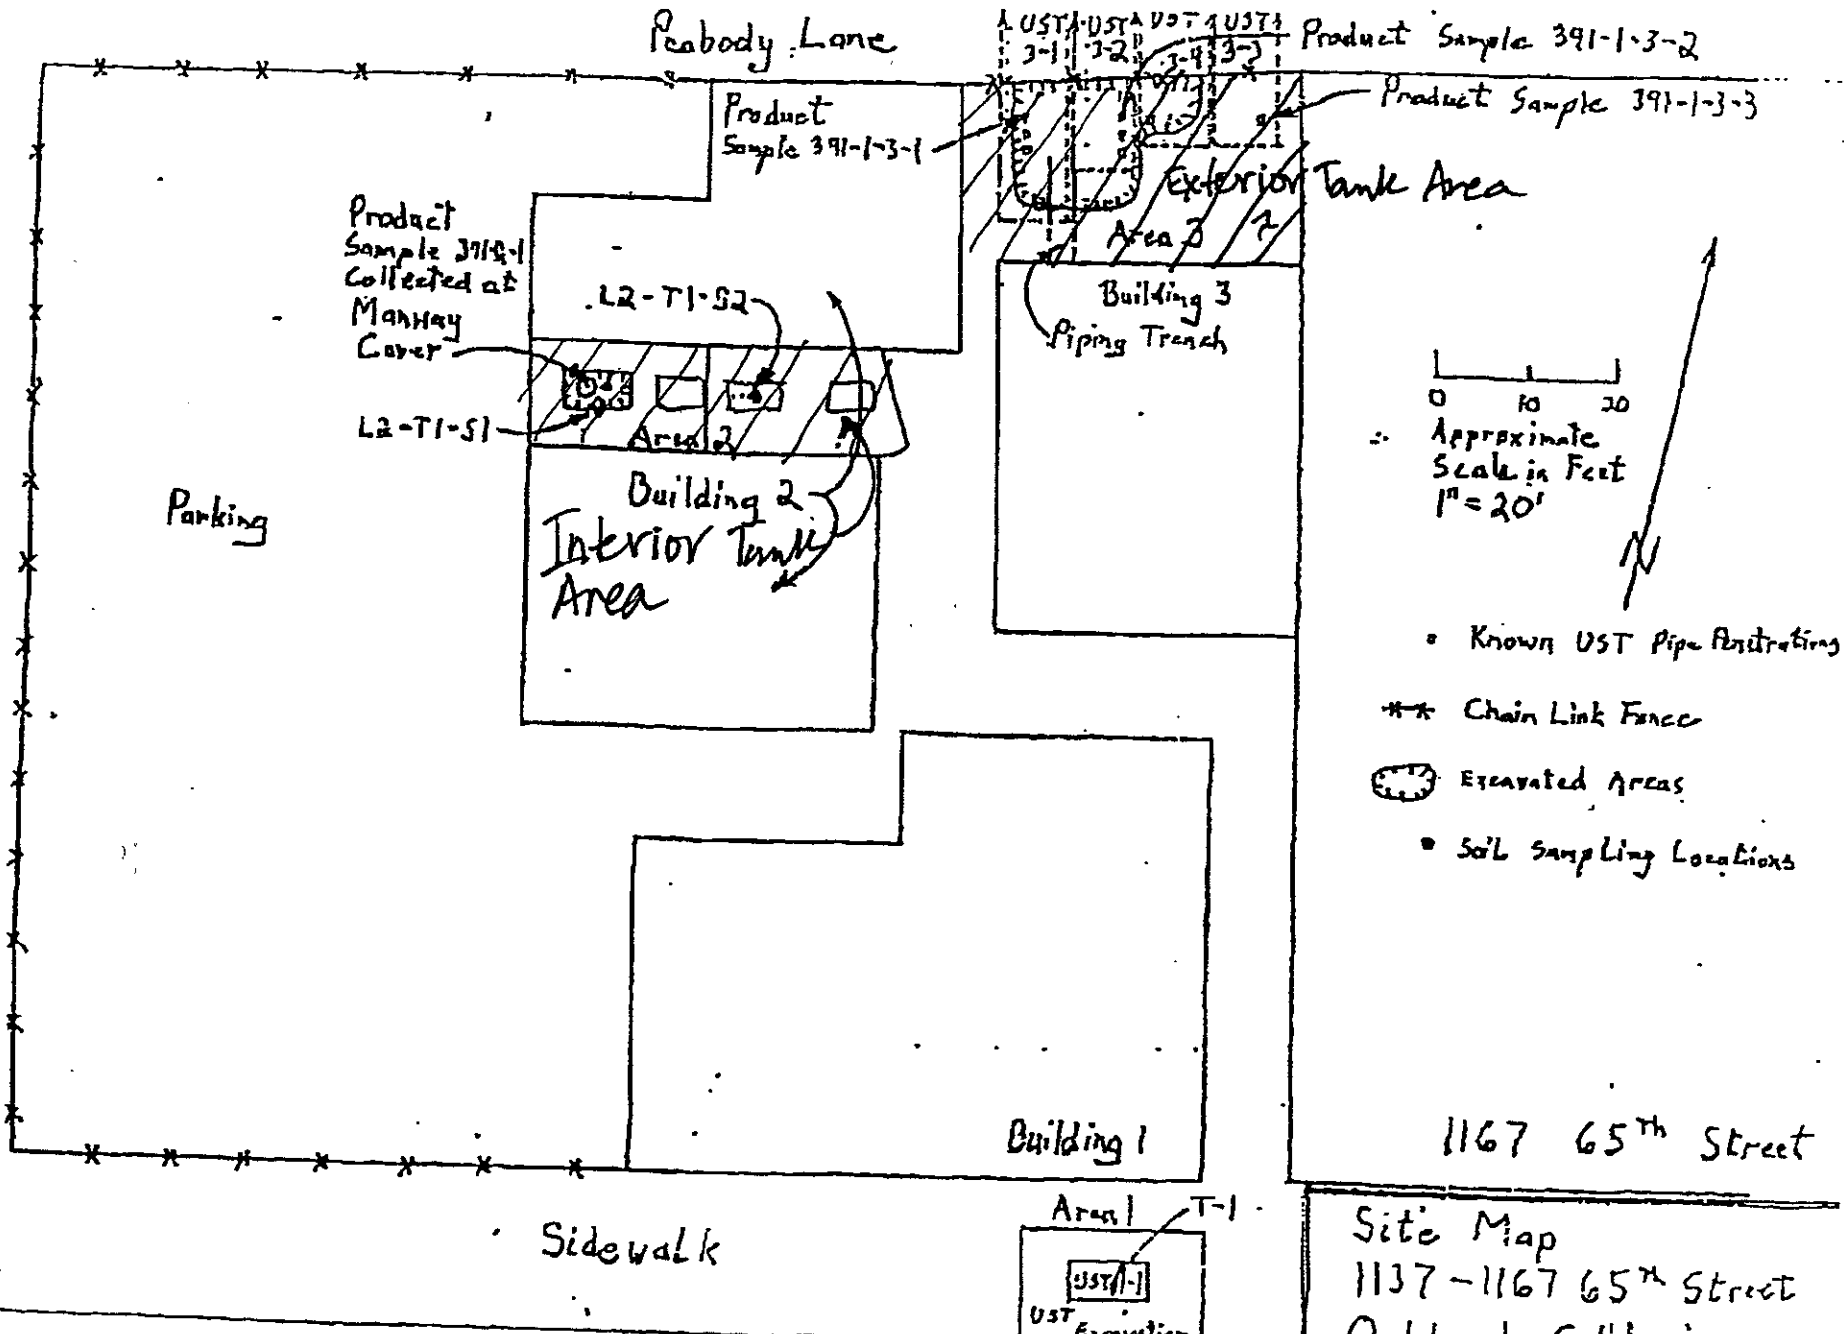 Peabody Lane
UST
3-1
UST
3-2
UST
3-4
UST
3-3
Product Sample 391-1-3-2
Product Sample 391-1-3-3
Product
Sample 391-1-3-1
Exterior Tank Area
Area 3
Product
Sample
Collected at
Manway
Cover
L2-T1-S2
L2-T1-S1
Area 2
Building 2
Interior Tank
Area
Building 3
Piping Trench
0 10 20
Approximate
Scale in Feet
1" = 20'
N
Parking
Known UST Pipe Penetrations
Chain Link Fence
Excavated Areas
Soil Sampling Locations
Building 1
1167 65th Street
Sidewalk
Area 1
T-1
UST
UST
Excavation
Site Map
1137-1167 65th Street